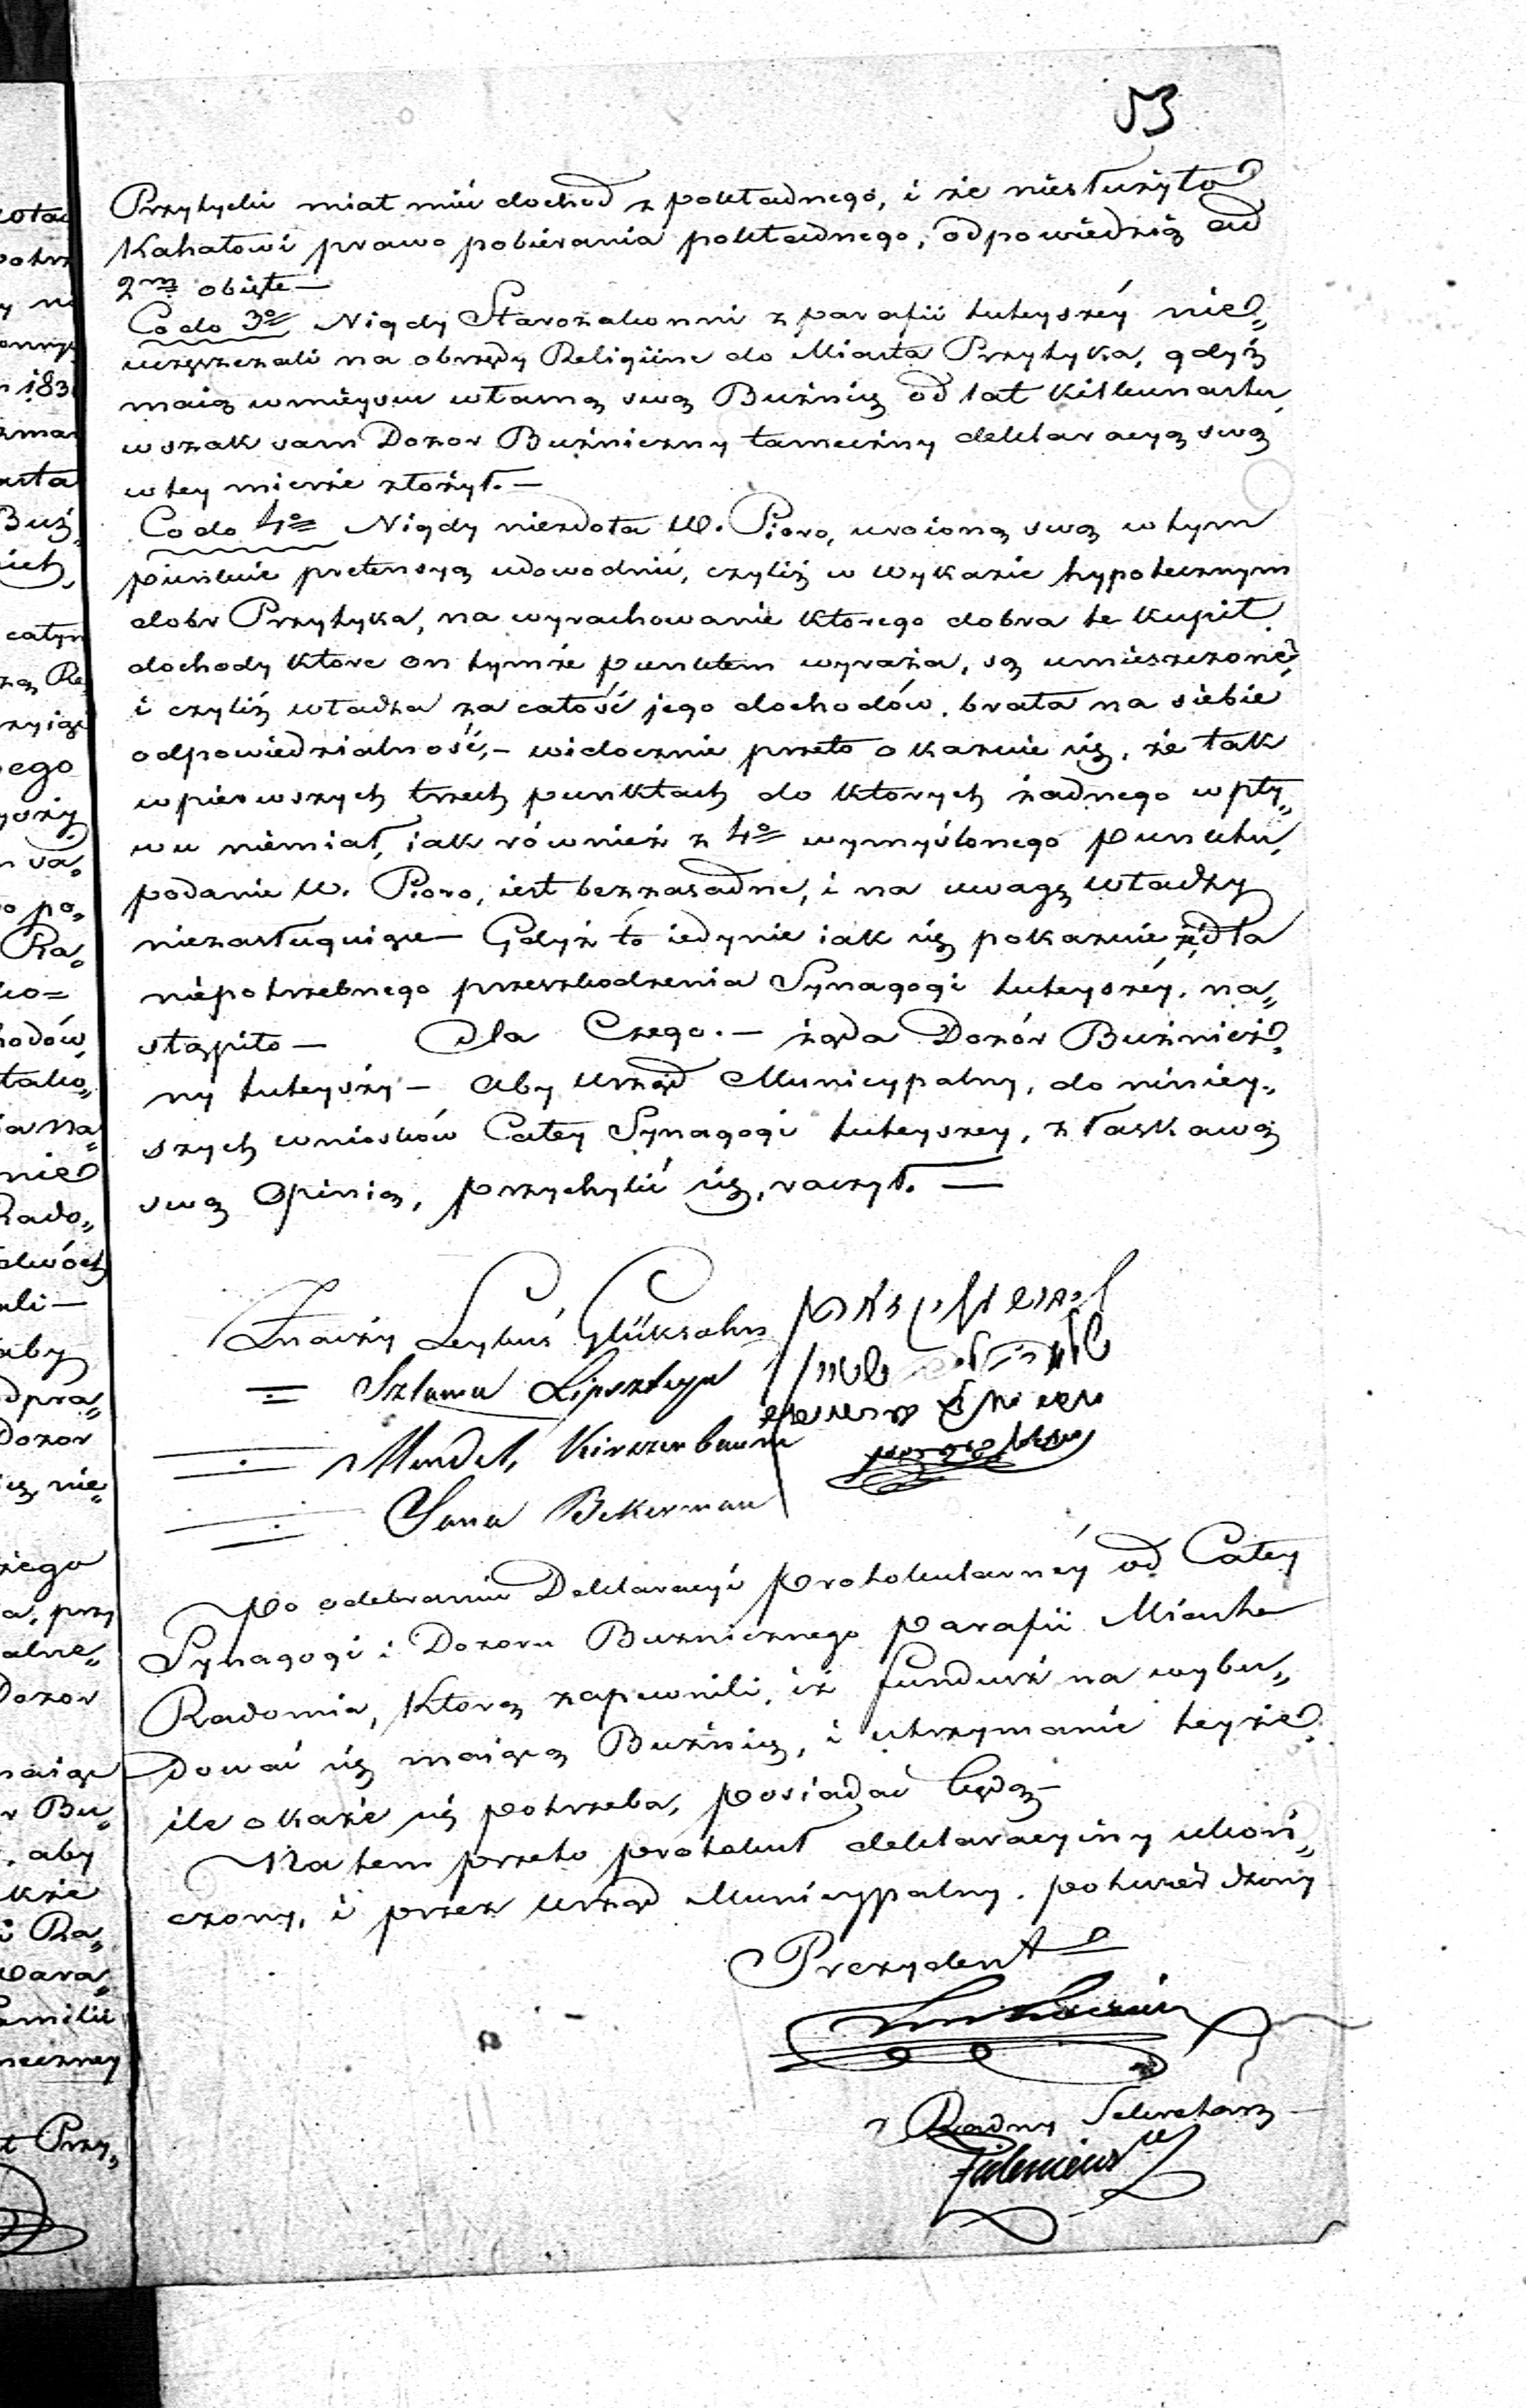 53
Przytycki miał mieć dochod z pokładnego, i że niesłużyło
Kahałowi prawo pobierania pokładnego, odpowiedzią ad
2m obięte —
Co do 3o Nigdy Starozakonni z parafii tuteyszéy nie„
uczęszczali na obrzędy Religiine do Miasta Przytyka, gdyż
maią w mieyscu własną swą Bużnicę od lat kilkunastu,
wszak sam Dozor Bużniczny tameczny deklaracyą swą
w tey mierze złożył. —
Co do 4o Nigdy niezdoła W. Pioro, uroioną swą w tym
punkcie pretensyą udowodnić, czyliż w wykazie hypotecznym
dobr Przytyka, na wyrachowanie którego dobra te kupił,
dochody które on tymże punktem wyraża, są umieszczone,
i czyliż władza za całość jego dochodów, brała na siebie
odpowiedzialność, — widocznie przeto okazuie się, że tak
w pierwszych trzech punktach do których żadnego wpły„
wu niemiał, iak również z 4o wymyślonego punktu,
podanie W. Pioro, iest bezzasadne, i na uwagę władzy
niezasługuiące — Gdyż to iedynie iak się pokazuie dla
niepotrzebnego przeszkodzenia Synagogi tuteyszéy, na„
stąpiło — Dla Czego. — żąda Dozór Bużnicz„
ny tuteyszy — aby Urząd Municypalny, do niniey„
szych wniosków Całey Synagogi tuteyszey, z łaskawą
swą Opinią, przychylić się, raczył. —
Znaczy Leybuś Glüksohn
= Szlama Lipsztayn
Mendel, Kirszenbaum
Sana Bekerman
Po odebraniu Deklaracyi protokularnéy od Całey
Synagogi i Dozoru Bużnicznego parafii Miasta
Radomia, którą zapewnili, iż fundusz na wybu„
dować się maiącą Bużnicę, i utrzymanie teyże,
ile okaże się potrzeba, posiadać będą —
Na tem przeto protokuł deklaracyiny ukoń„
czony, i przez Urząd Municypalny. potwierdzony
Prezydent
Radny Sekretarz